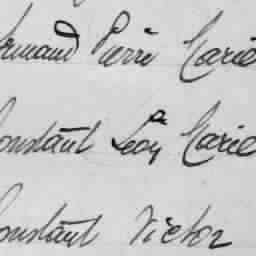 Armand Pierre Marie
Constant Léon Marie
Constant Victor